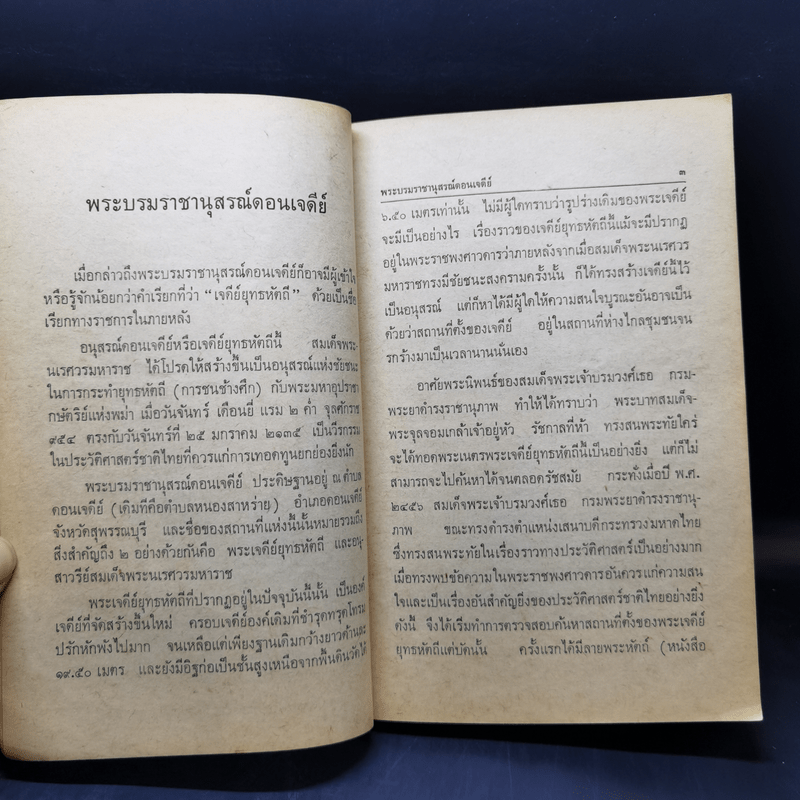 พระบรมราชานุสรณ์ดอนเจดีย์
เมื่อกล่าวถึงพระบรมราชานุสรณ์ดอนเจดีย์ก็อาจมีผู้เข้าใจ
หรือรู้จักน้อยกว่าคำเรียกที่ว่า “เจดีย์ยุทธหัตถี” ด้วยเป็นชื่อ
เรียกทางราชการในภายหลัง
อนุสรณ์ดอนเจดีย์หรือเจดีย์ยุทธหัตถีนี้ สมเด็จพระ-
นเรศวรมหาราช ได้โปรดให้สร้างขึ้นเป็นอนุสรณ์แห่งชัยชนะ
ในการกระทำยุทธหัตถี (การชนช้างศึก) กับพระมหาอุปราชา
กษัตริย์แห่งพม่า เมื่อวันจันทร์ เดือนยี่ แรม ๒ ค่ำ จุลศักราช
๙๕๔ ตรงกับวันจันทร์ที่ ๒๕ มกราคม ๒๑๓๕ เป็นวีรกรรม
ในประวัติศาสตร์ชาติไทยที่ควรแก่การเทอดทูนยกย่องยิ่งนัก
พระบรมราชานุสรณ์ดอนเจดีย์ ประดิษฐานอยู่ ณ ตำบล
ดอนเจดีย์ (เดิมทีคือตำบลหนองสาหร่าย) อำเภอดอนเจดีย์
จังหวัดสุพรรณบุรี และชื่อของสถานที่แห่งนี้นั้นหมายรวมถึง
สิ่งสำคัญถึง ๒ อย่างด้วยกันคือ พระเจดีย์ยุทธหัตถี และอนุ-
สาวรีย์สมเด็จพระนเรศวรมหาราช
พระเจดีย์ยุทธหัตถีที่ปรากฏอยู่ในปัจจุบันนี้นั้น เป็นองค์
เจดีย์ที่จัดสร้างขึ้นใหม่ ครอบเจดีย์องค์เดิมที่ชำรุดทรุดโทรม
ปรักหักพังไปมาก จนเหลือแต่เพียงฐานเดิมกว้างยาวด้านละ
๑๙.๕๐ เมตร และยังมีอิฐก่อเป็นชั้นสูงเหนือจากพื้นดินวัดได้
พระบรมราชานุสรณ์ดอนเจดีย์ ๓
๖.๕๐ เมตรเท่านั้น ไม่มีผู้ใดทราบว่ารูปร่างเดิมของพระเจดีย์
จะมีเป็นอย่างไร เรื่องราวของเจดีย์ยุทธหัตถีนี้แม้จะมีปรากฏ
อยู่ในพระราชพงศาวดารว่าภายหลังจากเมื่อสมเด็จพระนเรศวร
มหาราชทรงมีชัยชนะสงครามครั้งนั้น ก็ได้ทรงสร้างเจดีย์นี้ไว้
เป็นอนุสรณ์ แต่ก็หาได้มีผู้ใดให้ความสนใจบูรณะอันอาจเป็น
ด้วยว่าสถานที่ตั้งของเจดีย์ อยู่ในสถานที่ห่างไกลชุมชนจน
รกร้างมาเป็นเวลานานนั่นเอง
อาศัยพระนิพนธ์ของสมเด็จพระเจ้าบรมวงศ์เธอ กรม-
พระยาดำรงราชานุภาพ ทำให้ได้ทราบว่า พระบาทสมเด็จ-
พระจุลจอมเกล้าเจ้าอยู่หัว รัชกาลที่ห้า ทรงสนพระทัยใคร่
จะได้ทอดพระเนตรพระเจดีย์ยุทธหัตถีนี้เป็นอย่างยิ่ง แต่ก็ไม่
สามารถจะไปค้นหาได้จนตลอดรัชสมัย กระทั่งเมื่อปี พ.ศ.
๒๔๕๖ สมเด็จพระเจ้าบรมวงศ์เธอ กรมพระยาดำรงราชานุ-
ภาพ ขณะทรงดำรงตำแหน่งเสนาบดีกระทรวงมหาดไทย
ซึ่งทรงสนพระทัยในเรื่องราวทางประวัติศาสตร์เป็นอย่างมาก
เมื่อทรงพบข้อความในพระราชพงศาวดารอันควรแก่ความสน
ใจและเป็นเรื่องอันสำคัญยิ่งของประวัติศาสตร์ชาติไทยอย่างยิ่ง
ดังนี้ จึงได้เริ่มทำการตรวจสอบค้นหาสถานที่ตั้งของพระเจดีย์
ยุทธหัตถีแต่บัดนั้น ครั้งแรกได้มีลายพระหัตถ์ (หนังสือ